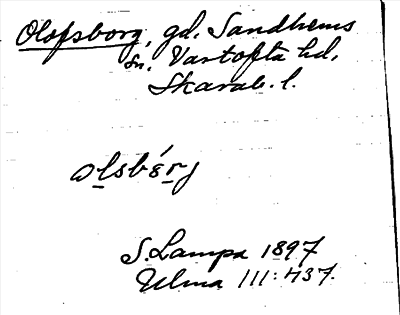 Olofsborg, gd. Sandhems
sn. Vartofta hd.
Skarab. l.
olsbórj
S. Lampa 1897
Ulma 111:437.